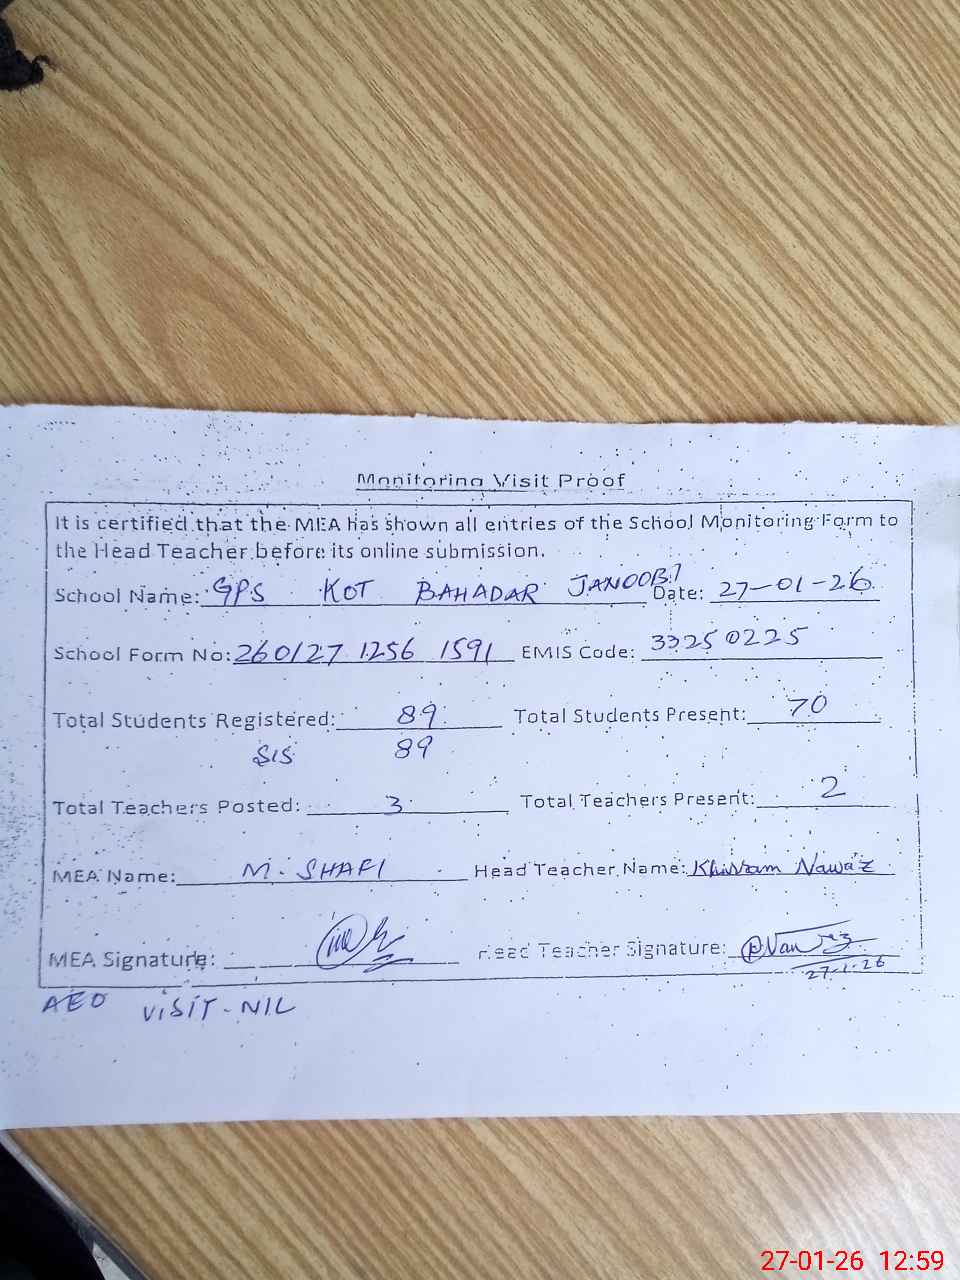 Monitoring Visit Proof
It is certified that the MEA has shown all entries of the School Monitoring Form to
the Head Teacher before its online submission.
School Name: GPS KOT BAHADAR JANOOBI Date: 27-01-26
School Form No: 260127 1256 1591 EMIS Code: 33250225
Total Students Registered: 89 Total Students Present: 70
SIS 89
Total Teachers Posted: 3 Total Teachers Present: 2
MEA Name: M. SHAFI Head Teacher Name: Khurram Nawaz
MEA Signature: Head Teacher Signature:
27-1-26
AEO VISIT-NIL
27-01-26 12:59